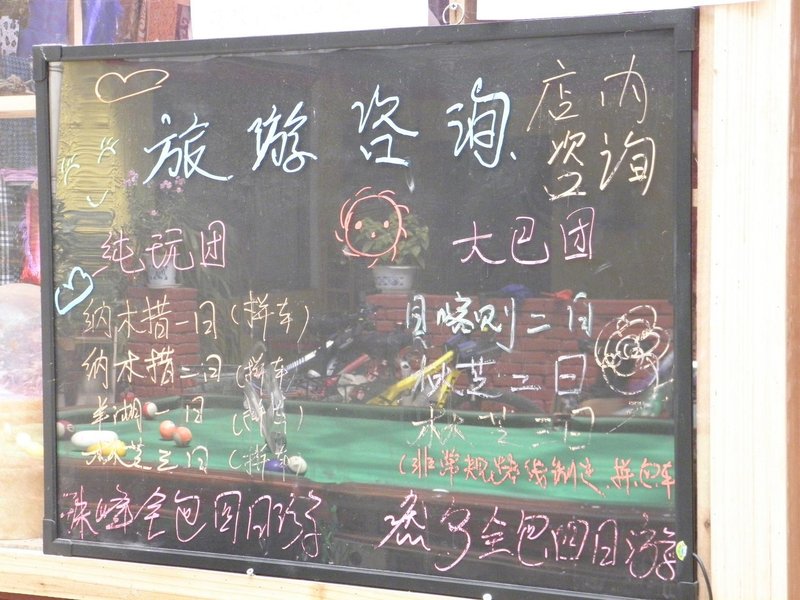 旅游咨询
店内咨询
纯玩团
纳木措一日(拼车)
纳木措二日(拼车
羊湖一日(拼车)
林芝三日(拼车
大巴团
日喀则二日
林芝二日
林芝三日
(非常规路线制定,拼包车
珠峰全包四日游
全包四日游